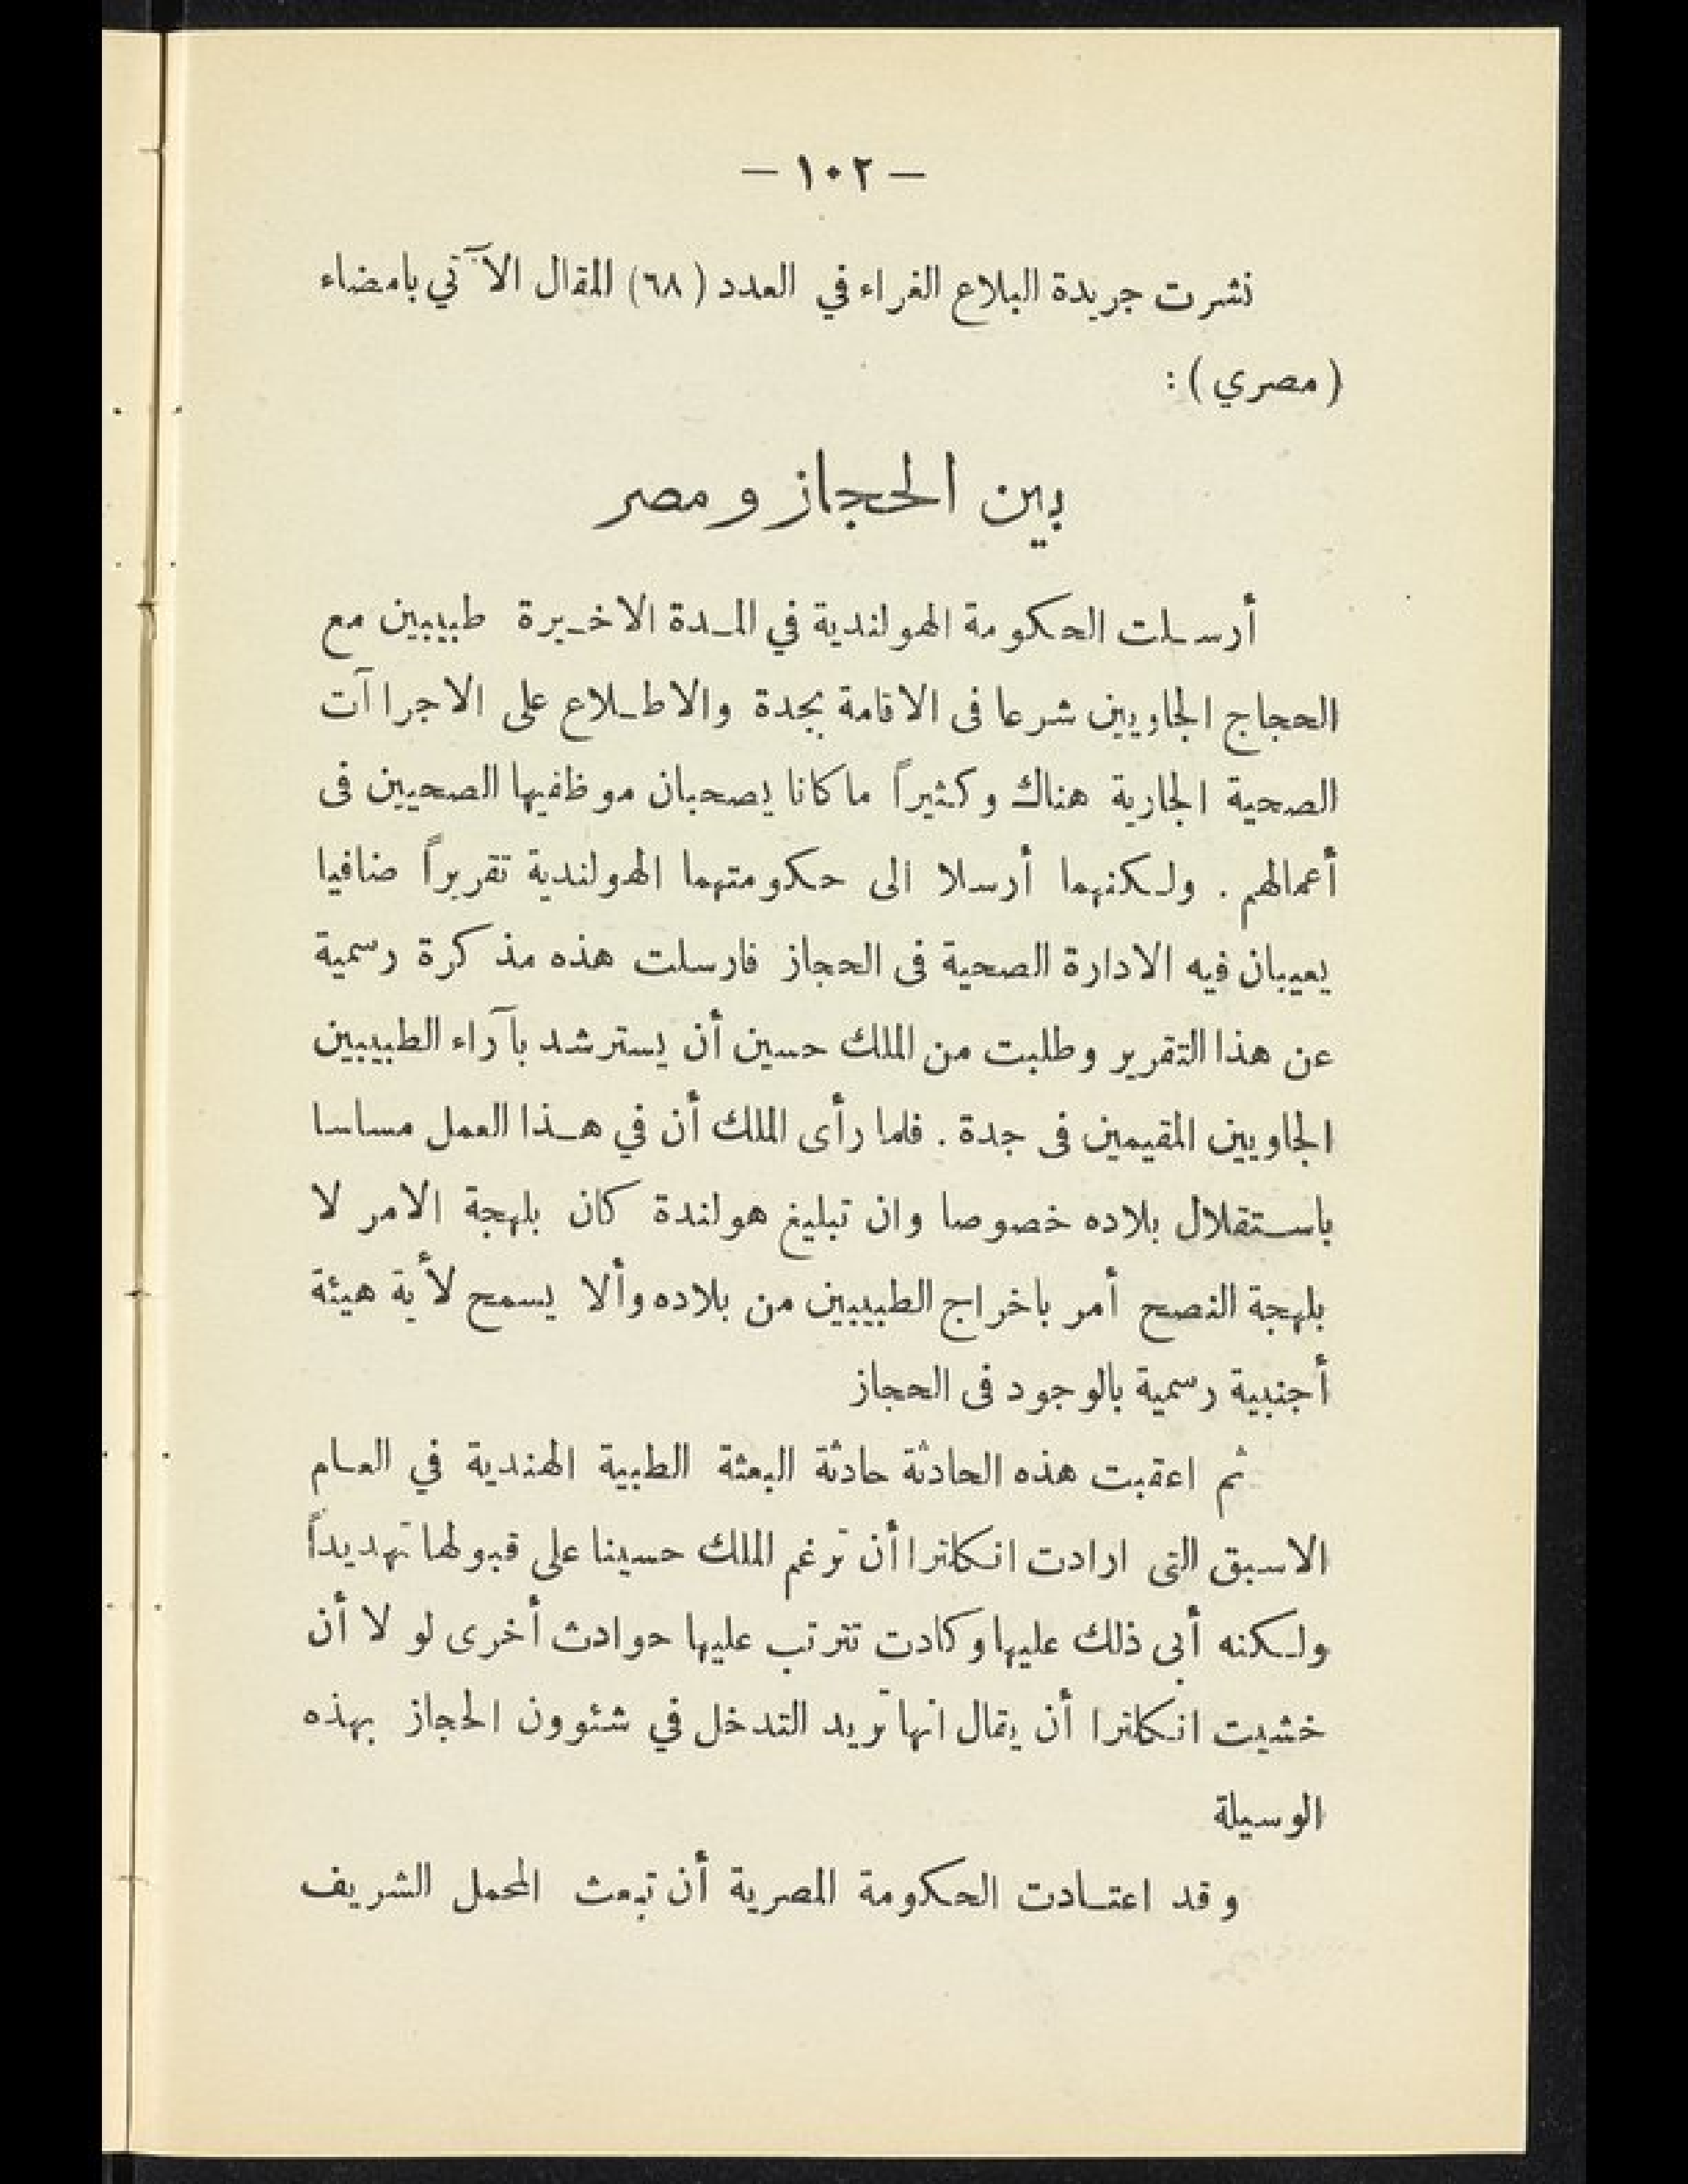 — ١٠٢ —
نشرت جريدة البلاغ الغراء في العدد (٦٨) المقال الآتي بامضاء
(مصري) :
بين الحجاز ومصر
أرسلت الحكومة الهولندية في المدة الاخيرة طبيبين مع
الحجاج الجاويين شرعا فى الاقامة بجدة والاطلاع على الاجراآت
الصحية الجارية هناك وكثيراً ما كانا يصحبان موظفيها الصحيين فى
أعمالهم . ولكنهما أرسلا الى حكومتهما الهولندية تقريراً ضافيا
يعيبان فيه الادارة الصحية فى الحجاز فارسلت هذه مذكرة رسمية
عن هذا التقرير وطلبت من الملك حسين أن يسترشد بآراء الطبيبين
الجاويين المقيمين فى جدة . فلما رأى الملك أن في هذا العمل مساسا
باستقلال بلاده خصوصا وان تبليغ هولندة كان بلهجة الامر لا
بلهجة النصح أمر باخراج الطبيبين من بلاده وألا يسمح لأية هيئة
أجنبية رسمية بالوجود فى الحجاز
ثم اعقبت هذه الحادثة حادثة البعثة الطبية الهندية في العام
الاسبق التى ارادت انكلترا أن ترغم الملك حسينا على قبولها تهديداً
ولكنه أبى ذلك عليها وكادت تترتب عليها حوادث أخرى لو لا أن
خشيت انكلترا أن يقال انها تريد التدخل في شئوون الحجاز بهذه
الوسيلة
وقد اعتادت الحكومة المصرية أن تبعث المحمل الشريف